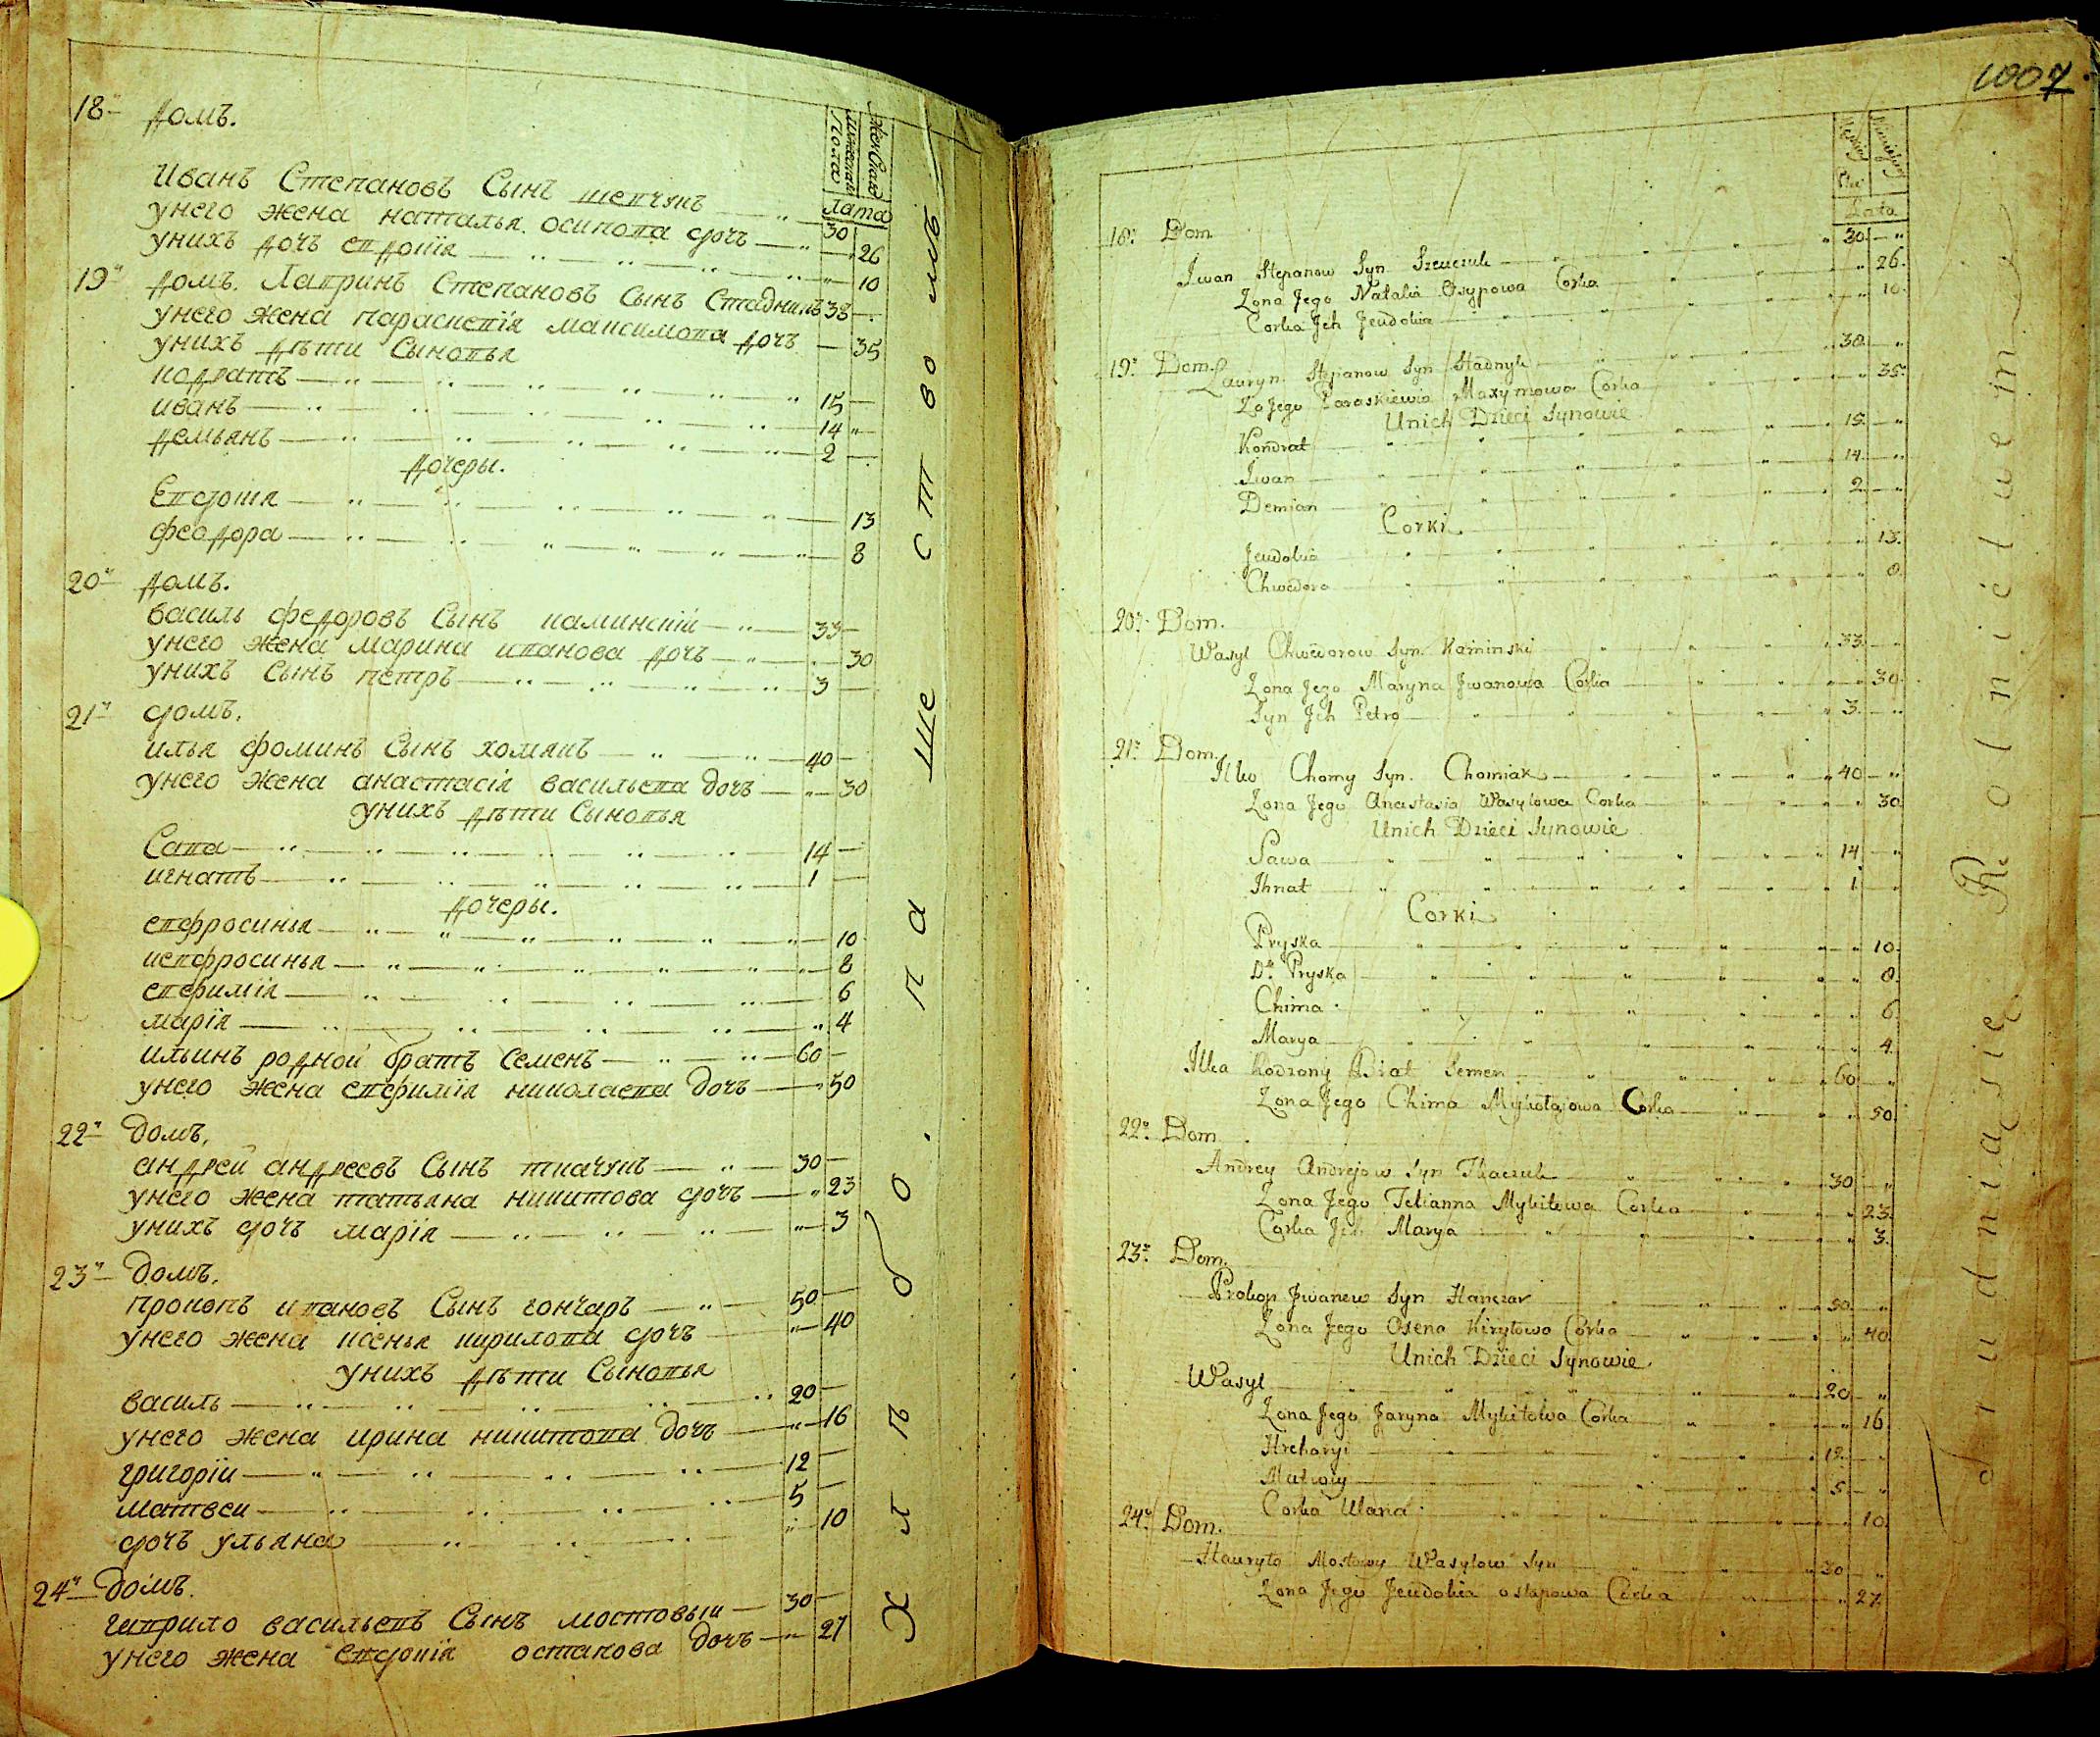 18. Домъ.
женскаго
мужескаго
полов
лата
Иванъ Степановъ Сынъ шевчукъ 30
унего жена наталья осипова дочъ 26
унихъ дочъ евдокія 10
19 домъ. Лавринъ Степановъ Сынъ Стадникъ 38
унего жена параскевія максимова дочъ 35
унихъ дѣти Сыновья
кодратъ 15
иванъ 14
демьянъ 2
дочеры.
Евдокия 13
феодора 8
20 домъ.
василь федоровъ Сынъ каминскій 33
унего жена марина иванова дочъ 30
унихъ Сынъ петръ 3
21 домъ.
илья фоминъ Сынъ хомякъ 40
унего жена анастасія васильева дочъ 30
унихъ дѣти Сыновья
Сава 14
игнатъ 1
дочеры.
евфросинья 10
иевфросинья 8
евфимія 6
марія 4
ильинъ родной братъ Семенъ 60
унего жена евфимія николаева дочъ 50
22 домъ.
андрей андреевъ Сынъ ткачукъ 30
унего жена татьяна никитова дочъ 23
унихъ дочъ марія 3
23 домъ.
прокопъ ивановъ Сынъ гончаръ 50
унего жена ксенья кирилова дочъ 40
унихъ дѣти Сыновья
василь 20
унего жена ирина никитова дочъ 16
григорій 12
матвеи 5
дочъ ульяна 10
24 домъ.
гаврило васильевъ Сынъ мостовыи 30
унего жена евдокія остапова дочъ 27
хлѣбопашествомъ
1007
Lata
18. Dom
Jwan Stepanow Syn Szewczuk 30
Zona Jego Natalia Osypowa Corka 26
Corka Jch Jeudokia 10
19. Dom. Lauryn Stepanow Syn Stadnyk 38
Zo Jego Paraskiewia Maxymowa Corka 35
Unich Dzieci Synowie
Kondrat 15
Jwan 14
Demian 2
Corki
Jeudokia 13
Chwedora 8
20. Dom.
Wasyl Chwedorow Syn Kaminski 33
Zona Jego Maryna Jwanowa Corka 30
Syn Jch Petro 3
21. Dom.
Ilko Chomy Syn. Chomiak 40
Zona Jego Anastasia Wasylowa Corka 30
Unich Dzieci Synowie
Sawa 14
Ihnat 1
Corki
Pryska 10
Da Pryska 8
Chima 6
Marya 4
Ilka Rodzony Brat Semen 60
Zona Jego Chima Mykołajowa Corka 50
22. Dom
Andrey Andrejow Syn Tkaczuk 30
Zona Jego Tetianna Mykitowa Corka 23
Corka Jch Marya 3
23. Dom.
Prokop Jwanow Syn Hanczar 50
Zona Jego Osena Kiryłowa Corka 40
Unich Dzieci Synowie
Wasyl 20
Zona Jego Jaryna Mykitowa Corka 16
Hrehoryi 12
Matwiy 5
Corka Ulana 10
24. Dom.
Hauryło Mostowy Wasylow Syn 30
Zona Jego Jeudokia ostapowa Corka 27
Trudniąsię Rolnictwem